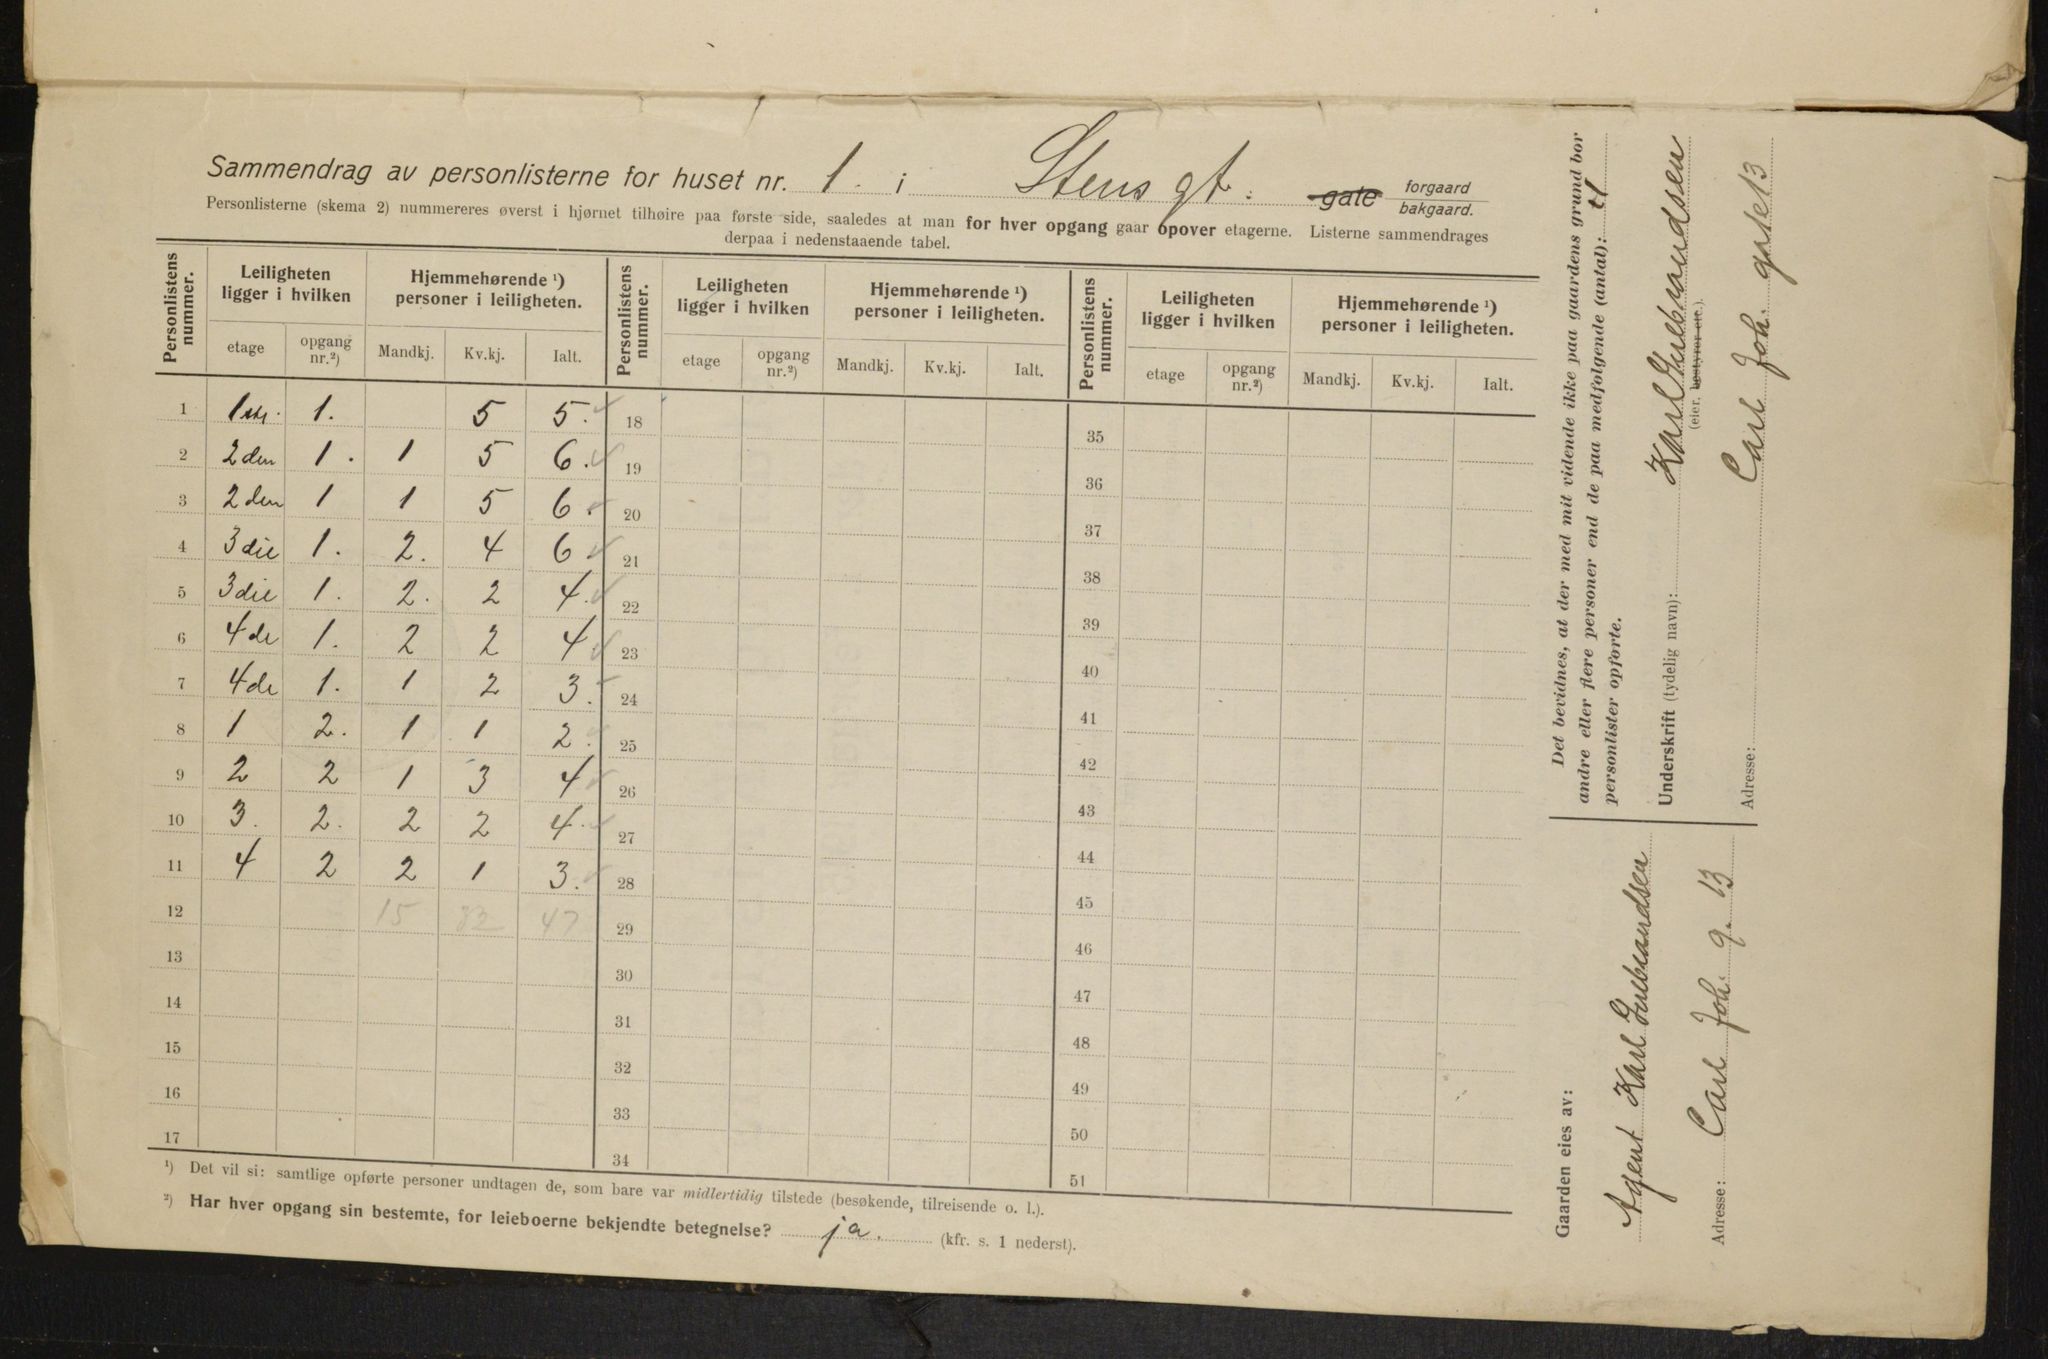 Sammendrag av personlisterne for huset nr. 1. i Stensgt. gate forgaard bakgaard.
Personlisterne (skema 2) nummereres øverst i hjørnet tilhøire paa første side, saaledes at man for hver opgang gaar opover etagerne. Listerne sammendrages
derpaa i nedenstaaende tabel.
Personlistens nummer. Leiligheten ligger i hvilken Hjemmehørende ¹) personer i leiligheten. Personlistens nummer. Leiligheten ligger i hvilken Hjemmehørende ¹) personer i leiligheten. Personlistens nummer. Leiligheten ligger i hvilken Hjemmehørende ¹) personer i leiligheten.
etage opgang nr.²) Mandkj. Kv.kj. Ialt. etage opgang nr.²) Mandkj. Kv.kj. Ialt. etage opgang nr.²) Mandkj. Kv.kj. Ialt.
1 1ste. 1. 5 5. 18 35
2 2den 1. 1 5 6. 19 36
3 2den 1 1 5 6. 20 37
4 3die 1. 2. 4 6 21 38
5 3die 1. 2. 2 4. 22 39
6 4de 1. 2 2 4 23 40
7 4de 1. 1 2 3. 24 41
8 1 2. 1 1 2. 25 42
9 2 2 1 3 4 26 43
10 3. 2. 2 2 4. 27 44
11 4 2 2 1 3. 28 45
12 15 32 47 29 46
13 30 47
14 31 48
15 32 49
16 33 50
17 34 51
¹) Det vil si: samtlige opførte personer undtagen de, som bare var midlertidig tilstede (besøkende, tilreisende o. l.).
²) Har hver opgang sin bestemte, for leieboerne bekjendte betegnelse? ja. (kfr. s. 1 nederst).
Det bevidnes, at der med mit vidende ikke paa gaardens grund bor
andre eller flere personer end de paa medfølgende (antal): 11
personlister opførte.
Underskrift (tydelig navn): Karl Gulbrandsen
(eier, bestyrer etc.).
Adresse: Carl Joh. gate 13
Gaarden eies av:
Agent Karl Gulbrandsen
Adresse: Carl Joh. g. 13